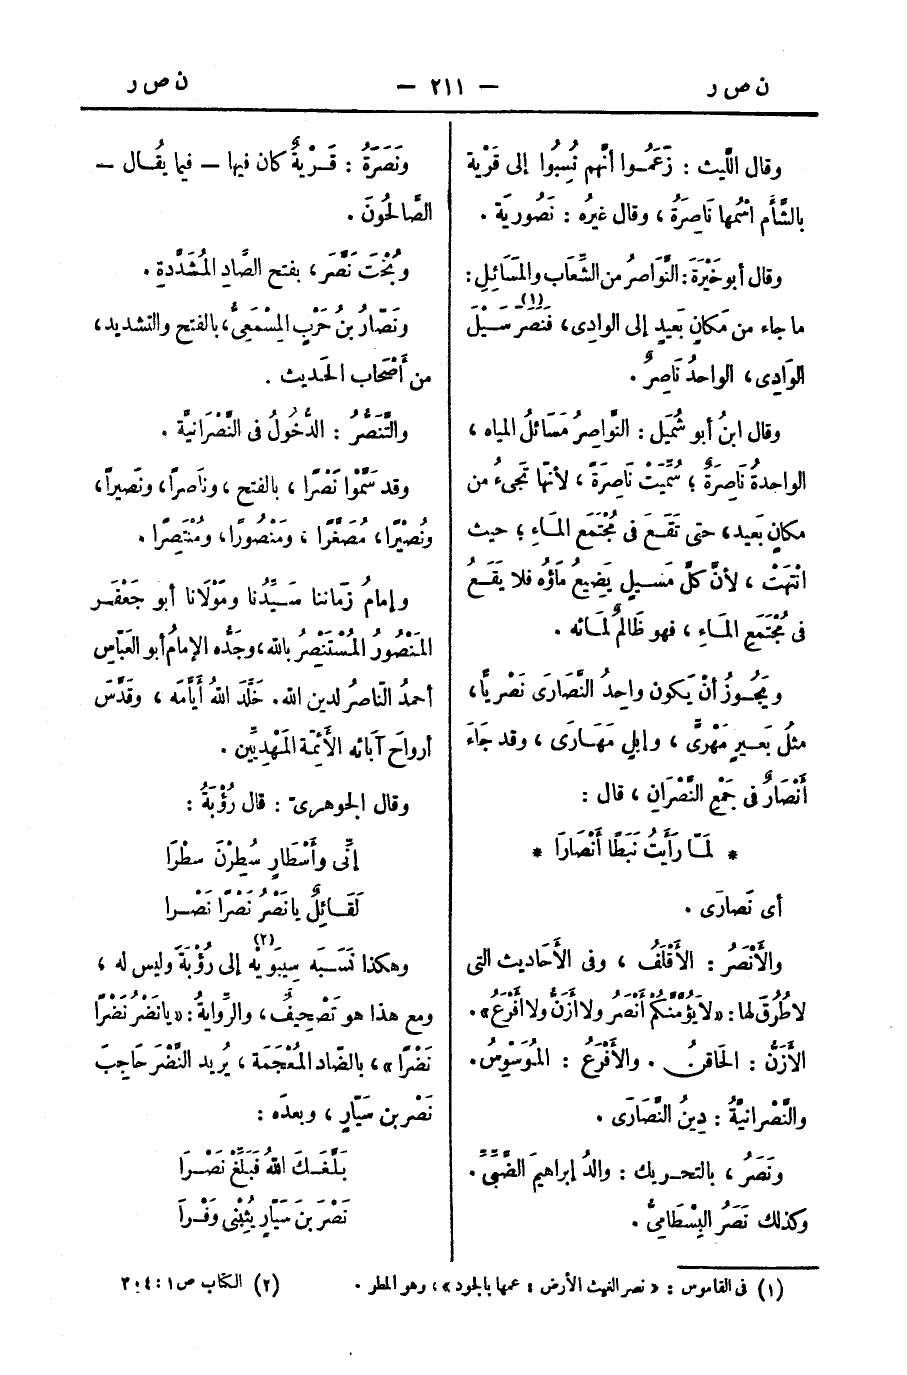 ن ص ر — ٢١١ — ن ص ر
وقال اللَّيث : زَعَمُوا أنَّهم نُسِبُوا إلى قَرْية
بالشَّأم اسْمُها نَاصِرَةُ ، وقال غيرُه : نَصُورية .
وقال أبو خَيْرَةَ : النَّوَاصرُ من الشِّعَاب والمَسَائلِ :
ما جاء من مَكانٍ بَعيدٍ إلى الوادِى، فَنَصَرَ(١) سَيْلَ
الوَادِى، الواحدُ نَاصِرٌ .
وقال ابنُ أبو شُمَيل : النَّواصِرُ مَسَائلُ المياه ،
الواحدةُ نَاصِرَةٌ ؛ سُمِّيَتْ ناصِرَةً ، لأنَّها تَجىءُ من
مكانٍ بَعيد، حتى تَقَعَ فى مُجْتَمَعِ المَـاءِ ؛ حيث
انْتهَتْ ، لأنَّ كلَّ مَسيلٍ يَضِيعُ ماؤه فلا يَقَـعُ
فى مُجْتَمَعِ المَـاءِ ، فهو ظَالِمٌ لمَـائه .
ويَجُـوزُ أنْ يَكون واحدُ النَّصَارَى نَصْرِيًّا،
مثلُ بَعـيرٍ مَهْرِىٍّ ، وإبلٍ مَهَـارَى ، وقد جَاءَ
أنْصَارٌ فى جَمْعِ النَّصْرَانِ ، قال :
* لَمَّـا رَأيَتُ نَبَطًا أنْصَارَا *
أى نَصارَى .
والأنْصَرُ : الأقْلَفُ ، وفى الأحَاديث التى
لاطُرُقَ لها : «لا يَؤُمَّنَّكُمْ أنْصَرُ ولا أزَنُّ ولا أفْرَعُ».
الأزَنُّ : الحَاقنُ . والأفْرَعُ : المُوَسْوِسُ.
والنَّصْرانيَّةُ : دِينُ النَّصارَى .
ونَصَرُ ، بالتحريك : والدُ إبراهيمَ الضَّبِّىِّ .
وكذلك نَصَرُ البِسْطَامِىُّ .
ونَصَرَةُ : قَـرْيةٌ كان فيها – فيما يُقَـال –
الصَّالحُونَ .
وبُخْتَ نَصَّرَ، بفتح الصَّادِ المُشَدَّدةِ .
ونَصَّارُ بنُ حَرْبٍ المِسْمَعِىُّ، بالفتح والتشديد،
من أصْحَاب الحَديث .
والتَّنَصُّرُ : الدُّخُولُ فى النَّصْرَانيَّة .
وقد سَمَّوْا نَصْرًا ، بالفتح ، وناَصراً، ونَصيراً،
ونُصَيْرًا، مُصَغَّرًا ، ومَنْصُورًا، ومُنْتَصِرًا .
وإمامُ زَمَاننا سَـيِّدُنا ومَوْلَانا أبو جَعْفَـر
المَنْصُورُ المُسْتَنْصِرُ بالله، وجَدُّه الإمامُ أبو العَبَّاس
أحمدُ النَّاصر لدين الله. خَلَّدَ اللهُ أيَّامَه ، وقَدَّسَ
أرواحَ آبَائه الأَئِمَّة المَهْدِيِّين .
وقال الجوهرىّ : قال رُؤْبَةُ :
إنِّى وأسْطَارٍ سُطِرْنَ سطْرَا
لَقَـائِلٌ يانَصْرُ نَصْرًا نَصْـرا
وهكذا نَسَبَه سِيبَوَيْه(٢) إلى رُؤْبَةَ وليس له ،
ومع هذا هو تَصْحيفٌ، والرِّوايةُ : «يانَضْرُ نَضْرًا
نَضْرًا»، بالضَّاد المُعْجَمَة ، يُريد النَّضْرَ حَاجِبَ
نَصْر بن سَيَّارٍ ، وبعدَه :
بَـلَّغَـكَ اللهُ فَبَلِّغْ نَصْـرَا
نَصْرَ بنَ سَيَّارٍ يُثِبْنِى وَفْـرَا
(١) فى القاموس : « نصر الغيث الأرض : عمها بالجود »، وهو المطر .
(٢) الكتاب ص ١ : ٣٠٤